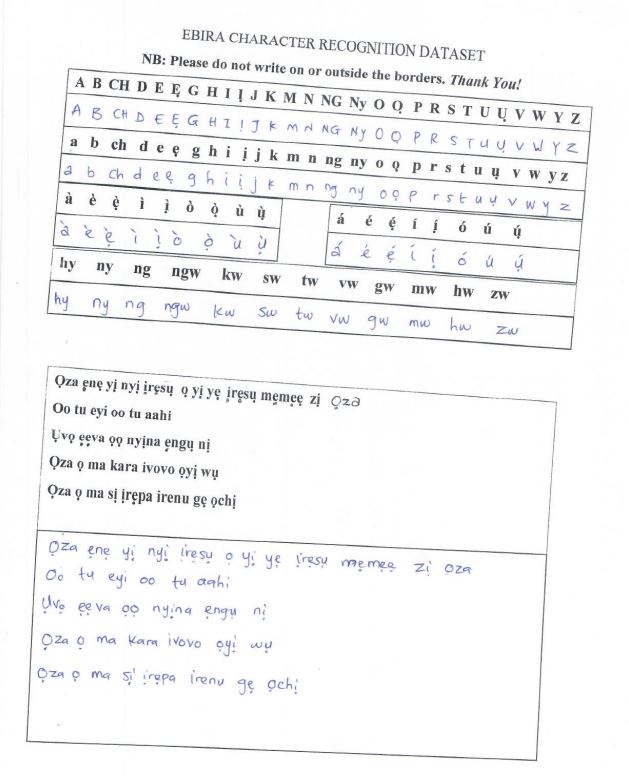 EBIRA CHARACTER RECOGNITION DATASET
NB: Please do not write on or outside the borders. Thank You!
A B CH D E Ẹ G H I Ị J K M N NG Ny O Ọ P R S T U Ụ V W Y Z
A B CH D E Ẹ G H I Ị J K M N NG Ny O Ọ P R S T U Ụ V W Y Z
a b ch d e ẹ g h i ị j k m n ng ny o ọ p r s t u ụ v w y z
a b ch d e ẹ g h i ị j k m n ng ny o ọ p r s t u ụ v w y z
à è ẹ̀ ì ị̀ ò ọ̀ ù ụ̀
à è ẹ̀ ì ị̀ ò ọ̀ ù ụ̀
á é ẹ́ í ị́ ó ú ụ́
á é ẹ́ í ị́ ó ú ụ́
hy ny ng ngw kw sw tw vw gw mw hw zw
hy ny ng ngw kw sw tw vw gw mw hw zw
Ọza ẹnẹ yị nyị ịrẹsụ ọ yị yẹ ịrẹsụ mẹmẹẹ zị ọza
Oo tu eyi oo tu aahi
Ụvọ ẹẹva ọọ nyịna ẹngụ nị
Ọza ọ ma kara ivovo ọyị wụ
Ọza ọ ma sị ịrẹpa irenu gẹ ọchị
Ọza ẹnẹ yị nyị ịrẹsụ ọ yị yẹ ịrẹsụ mẹmẹẹ zị ọza
Oo tu eyi oo tu aahi
Ụvọ ẹẹva ọọ nyịna ẹngụ nị
Ọza ọ ma kara ivovo ọyị wụ
Ọza ọ ma sị ịrẹpa irenu gẹ ọchị